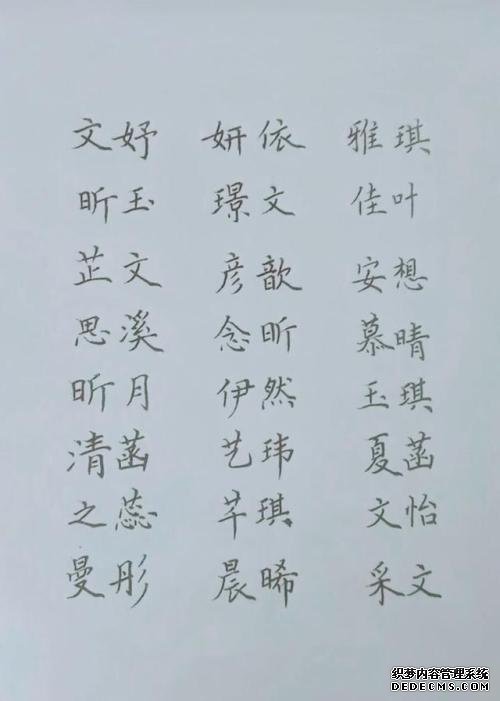 文妤 妍依 雅琪
昕玉 璟文 佳叶
芷文 彦歆 安想
思溪 念昕 慕晴
昕月 伊然 玉琪
清菡 艺玮 夏菡
之蕊 芊琪 文怡
曼彤 晨晞 采文
织梦内容管理系统
DEDECMS.COM